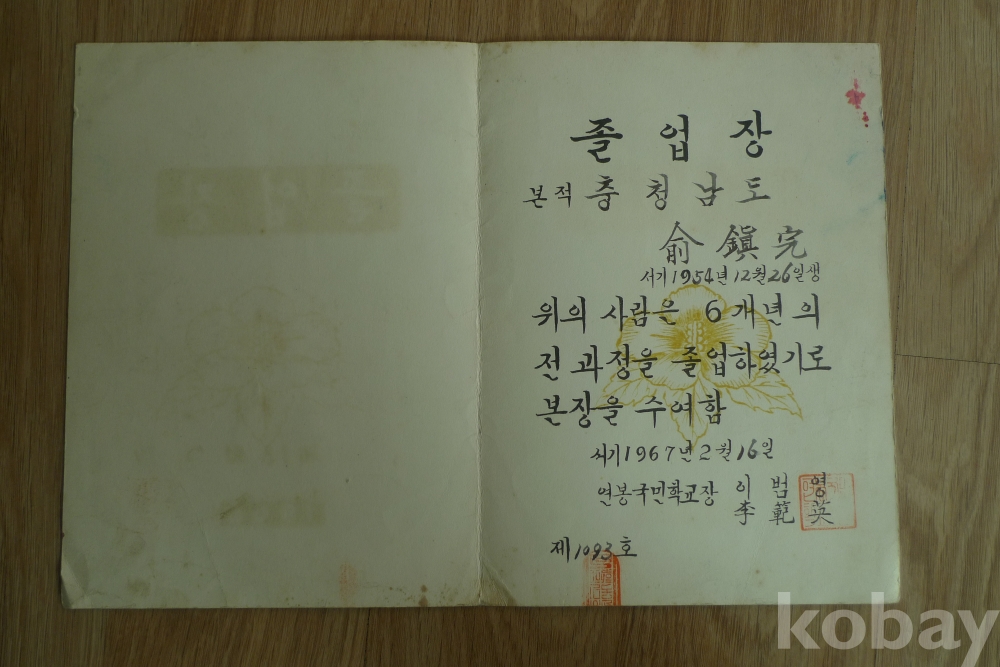 졸업장
본적 충청남도
俞鎭完
서기 1954년 12월 26일생
위의 사람을 6개년의
전 과정을 졸업하였기로
본장을 수여함
서기 1967년 2월 16일
연봉국민학교장 이범영
李範英
제1093호
kobay